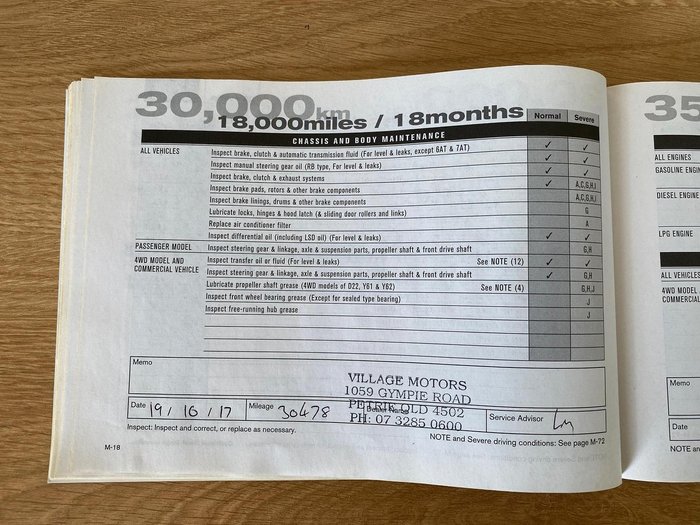 30,000km
18,000miles / 18months
Normal Severe
CHASSIS AND BODY MAINTENANCE
ALL VEHICLES Inspect brake, clutch & automatic transmission fluid (For level & leaks, except 6AT & 7AT) ✓ ✓
Inspect manual steering gear oil (RB type, For level & leaks) ✓ ✓
Inspect brake, clutch & exhaust systems ✓ ✓
Inspect brake pads, rotors & other brake components ✓ A,C,G,H,I
Inspect brake linings, drums & other brake components A,C,G,H,I
Lubricate locks, hinges & hood latch (& sliding door rollers and links) G
Replace air conditioner filter A
Inspect differential oil (including LSD oil) (For level & leaks) ✓ ✓
PASSENGER MODEL Inspect steering gear & linkage, axle & suspension parts, propeller shaft & front drive shaft G,H
4WD MODEL AND COMMERCIAL VEHICLE Inspect transfer oil or fluid (For level & leaks) See NOTE (12) ✓ ✓
Inspect steering gear & linkage, axle & suspension parts, propeller shaft & front drive shaft ✓ G,H
Lubricate propeller shaft grease (4WD models of D22, Y61 & Y62) See NOTE (4) G,H,J
Inspect front wheel bearing grease (Except for sealed type bearing) J
Inspect free-running hub grease J
Memo
VILLAGE MOTORS
1059 GYMPIE ROAD
PETRIE QLD 4502
PH: 07 3285 0600
Date 19/10/17 Mileage 30478 Service Advisor
Inspect: Inspect and correct, or replace as necessary.
NOTE and Severe driving conditions: See page M-72
M-18
35
ALL ENGINES
GASOLINE ENGIN
DIESEL ENGINE
LPG ENGINE
ALL VEHICLES
4WD MODEL
COMMERCIAL
Memo
Date
NOTE: an